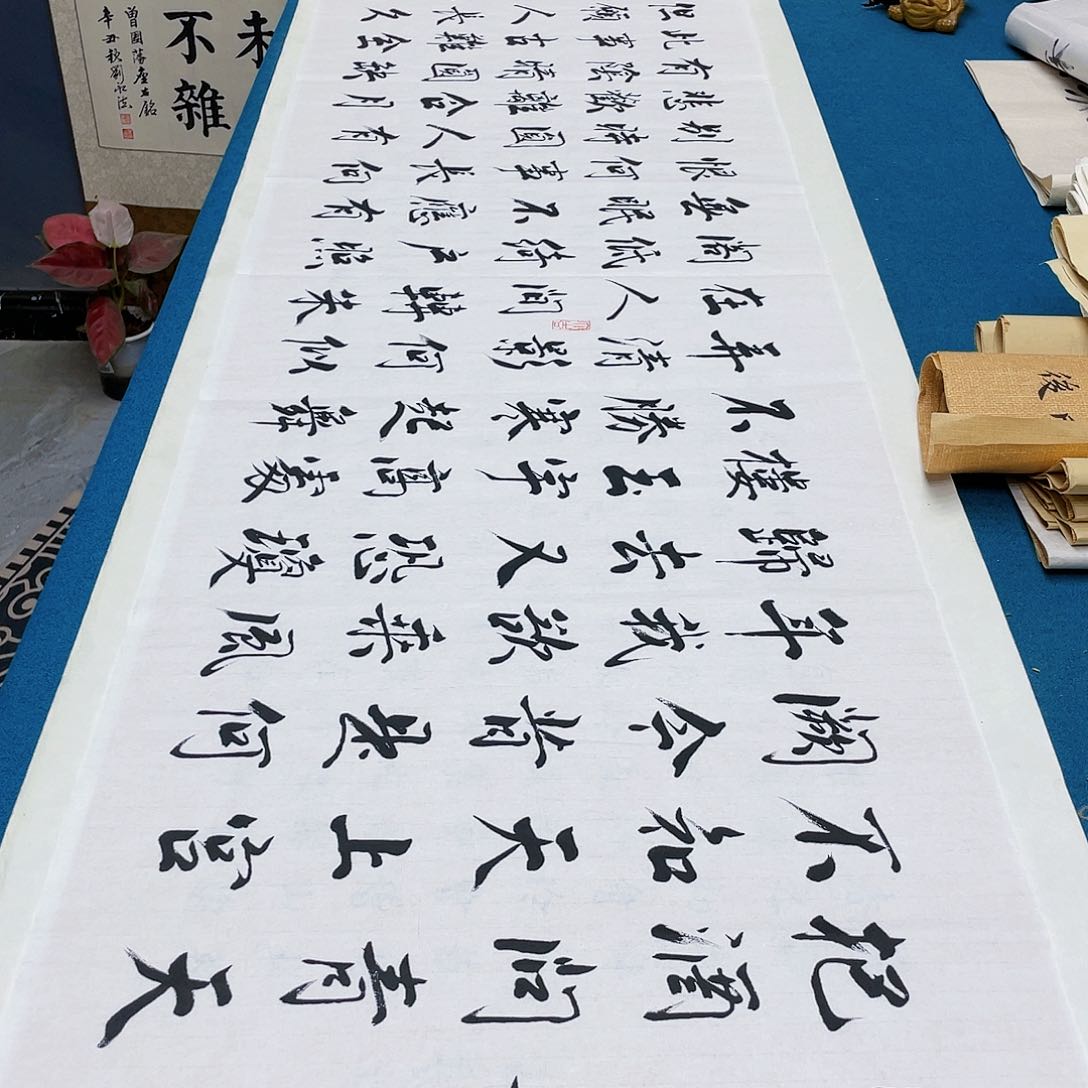 把酒問青天
不知天上宮
闕今昔是何
年我欲乘風
歸去又恐瓊
樓玉宇高處
不勝寒起舞
弄清影何似
在人間轉朱
閣低綺戶照
無眠不應有
恨何事長何
別時圓人有
悲歡離合月
有陰晴圓缺
此事古難全
但願人長久
未
不雜
曾國藩座右銘
辛丑秋劉
後